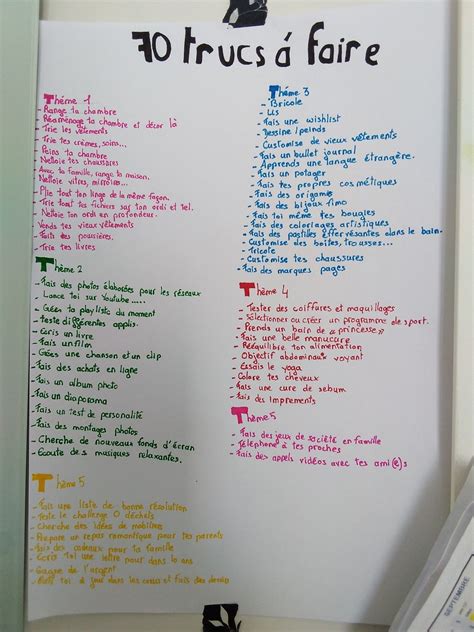 70 trucs à faire
Thème 1
- Range ta chambre
- Réaménage ta chambre et décor là
- Trie les vêtements
- Trie tes crèmes, soins...
- Peins ta chambre
- Nettoie tes chaussures
- Avec ta famille, range ta maison.
- Nettoie vitres, mirroires...
- Plie tout ton linge de la même façon.
- Trie tout tas fichiers sur ton ordi et tel.
- Nettoie ton ordi en profondeur.
- Vends tes vieux vêtements
- Faits des poussières.
- Trie tes livres
Thème 2
- Fais des photos élaborées pour les réseaux
- Lance toi sur Youtube....
- Créé ta playlists du moment
- Teste différentes applis.
- Ecris un livre
- Fais un film
- Créés une chanson et un clip
- Fais des achats en ligne
- Fais un album photo
- Fais un diaporama
- Fais un test de personalité
- Fais des montages photos
- Cherche de nouveaux fonds d'écran
- Ecoute des musiques relaxantes.
Thème 5
- Fais une liste de bonne résolution
- Teste le challenge 0 déchets
- Cherche des idées de mobilier
- Prépare un repas romantique pour tes parents
- Fais des cadeaux pour ta famille
- Ecris toi une lettre pour dans 10 ans
- Gagne de l'argent
- toi à jour dans tas cours et fais des
Thème 3
- Bricole
- Lis
- Fais une wishlist
- Dessine/peinds
- Customise de vieux vêtements
- Fais un bullet journal
- Apprends une langue étrangère.
- Fais un potager
- Fais tes propres cosmétiques
- Fais des origamis
- Fais des bijoux fimo
- Fais toi même tes bougies
- Fais des coloriages artistiques
- Fais des pastilles effervésantes dans le bain.
- Customise des boîtes, trousses...
- Tricote
- Customise tes chaussures
- Fais des marques pages
Thème 4
- Tester des coiffures et maquillages
- Sélectionner ou créer un programme de sport.
- Prends un bain de "princesse"
- Fais une belle manucure
- Rééquilibre ton alimentation
- Objectif abdominaux voyant
- Essais le yoga
- Colore tes cheveux
- Fais une cure de sebum
- Fais des imprements
Thème 5
- Fais des jeux de société en famille
- Téléphone à tes proches
- Fais des appels vidéos avec tes ami(e)s
SEPTEMBRE